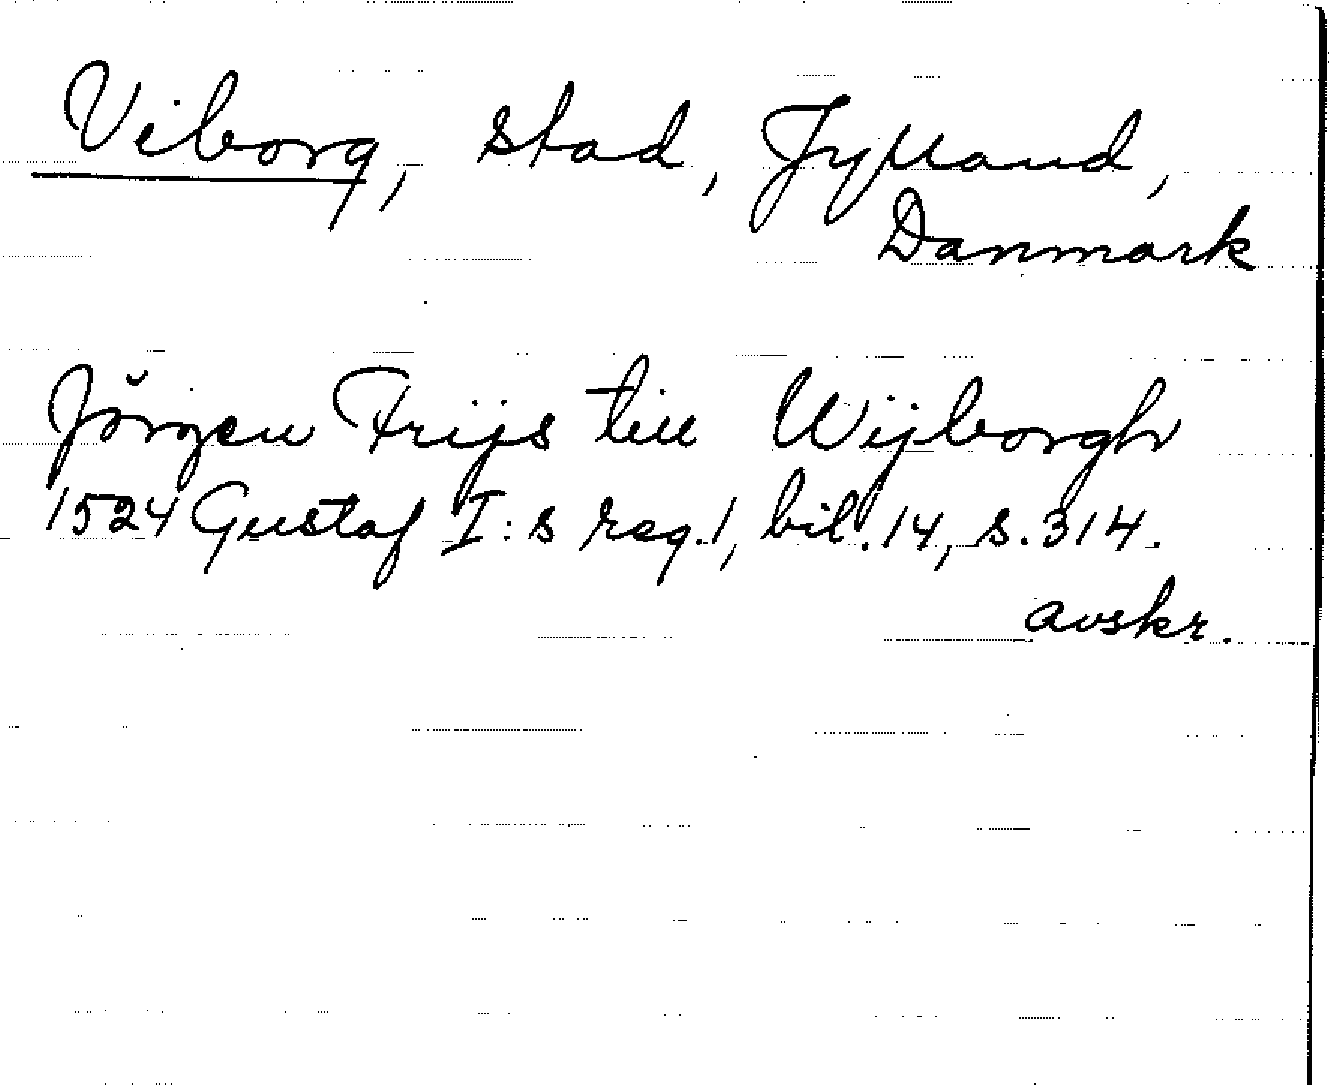 Viborg, stad, Jylland,
Danmark
Jörgen Frijs till Wijborgh
1524 Gustaf I:s reg. 1, bil. 14, s. 314.
avskr.